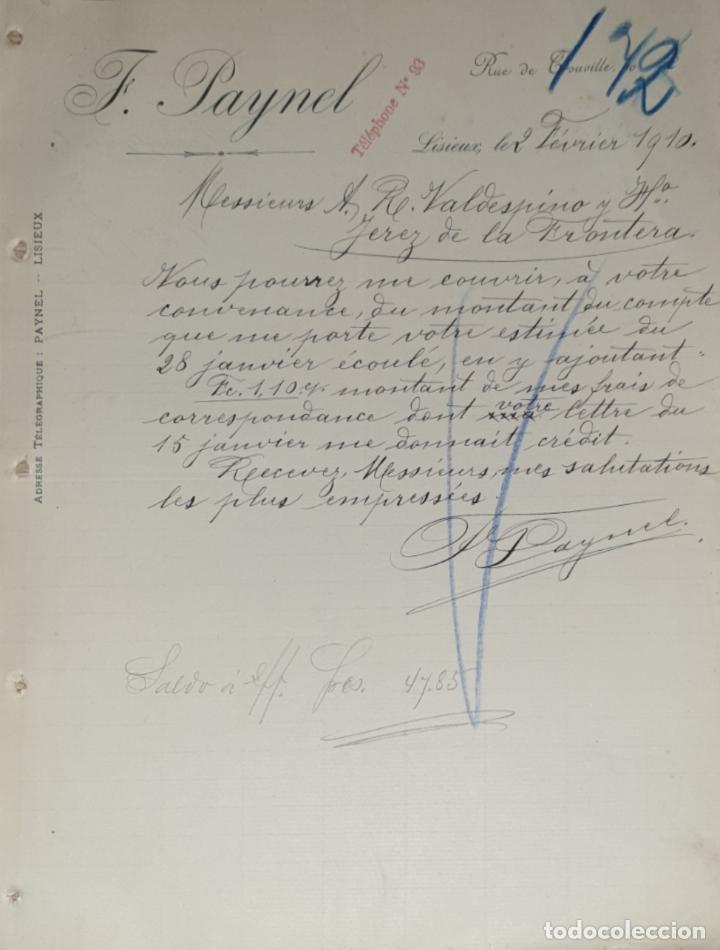 F. Paynel
Rue de Trouville,
172
Téléphone N° 93
Lisieux, le 2 Février 1910.
Messieurs A. R. Valdespino y Hº
Jerez de la Frontera.
Vous pourrez me couvrir, à votre
convenance, du montant du compte
que me porte votre estimée du
28 janvier écoulé, en y ajoutant
Fc. 1,10 montant de mes frais de
correspondance dont votre lettre du
15 janvier me donnait crédit.
Recevez, Messieurs, mes salutations
les plus empressées.
F Paynel.
Saldo á s/f. fcs. 47.85
ADRESSE TÉLÉGRAPHIQUE : PAYNEL -- LISIEUX
todocoleccion